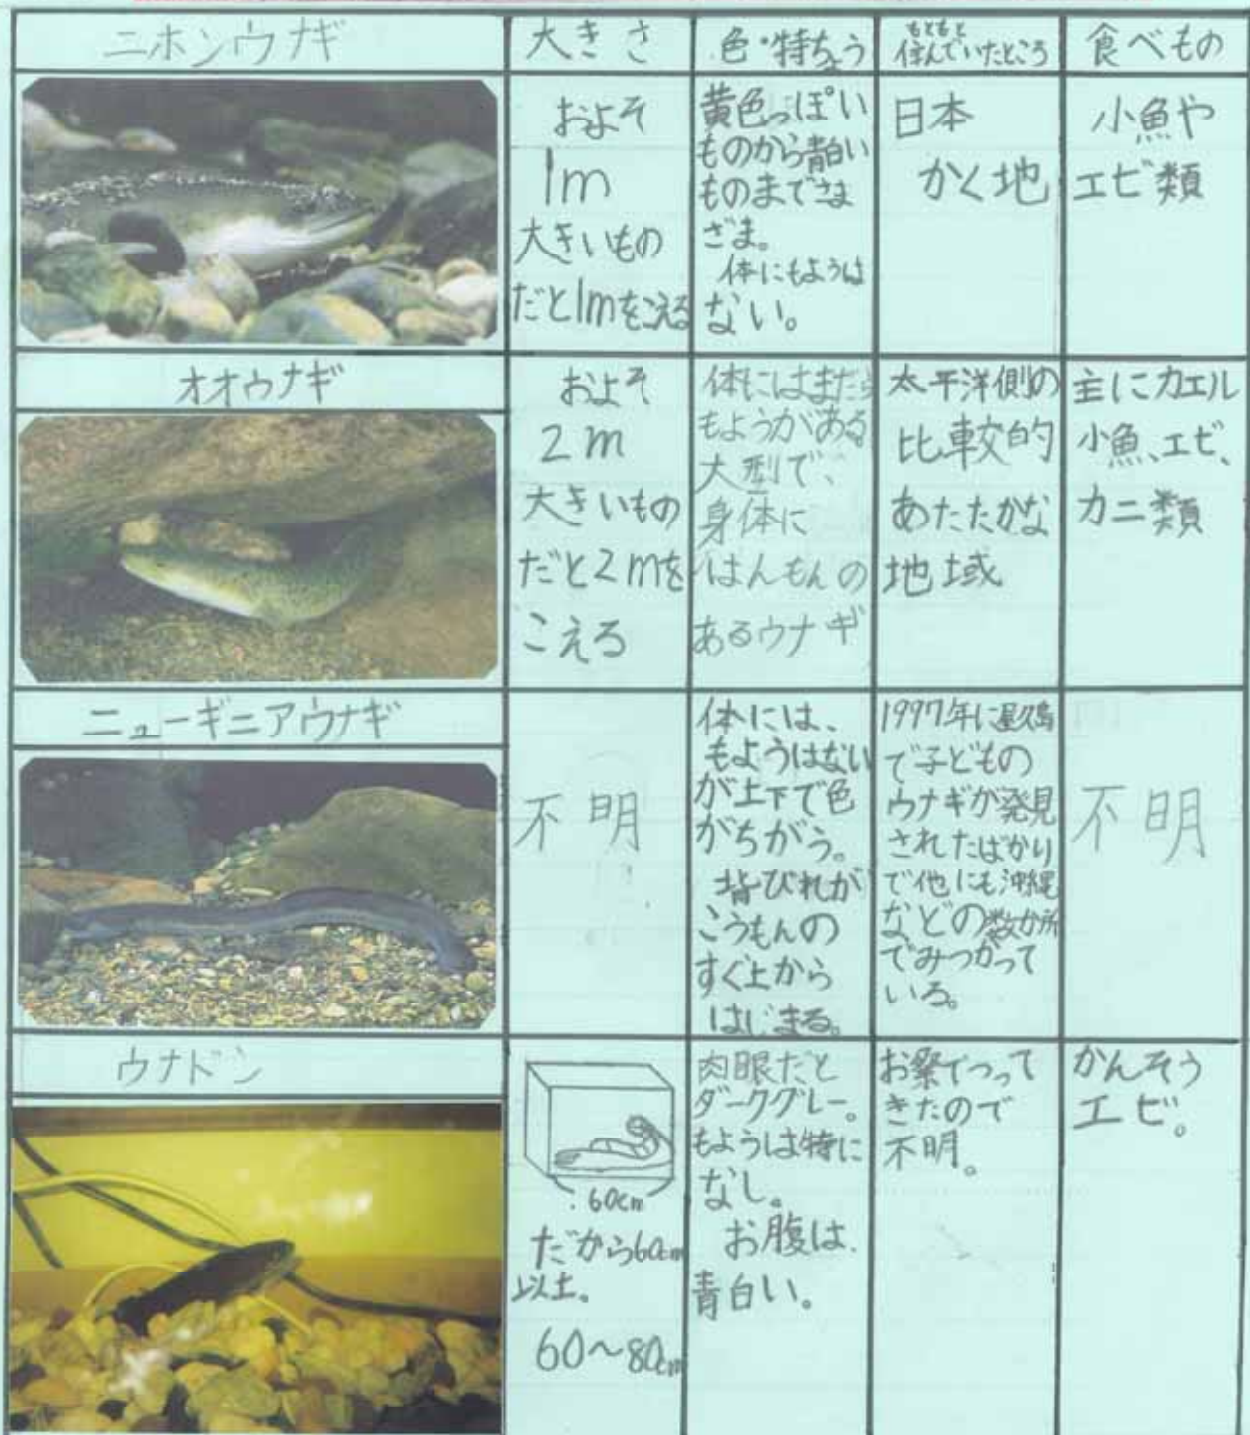 ニホンウナギ
大きさ
色・特ちょう
もともと
住んでいたところ
食べもの
およそ
1m
大きいもの
だと1mをこえる
黄色っぽい
ものから青白い
ものまでさま
ざま。
体にもようは
ない。
日本
かく地
小魚や
エビ類
オオウナギ
およそ
2m
大きいもの
だと2mを
こえる
体にはまだら
もようがある
大型で、
身体に
はんもんの
あるウナギ
太平洋側の
比較的
あたたかな
地域
主にカエル
小魚、エビ、
カニ類
ニューギニアウナギ
不明
体には、
もようはない
が上下で色
がちがう。
背びれが
こうもんの
すぐ上から
はじまる。
1997年に屋久島
で子どもの
ウナギが発見
されたばかり
で他にも沖縄
などの数か所
でみつかって
いる。
不明
ウナドン
60cm
だから60cm
以上。
60～80cm
肉眼だと
ダークグレー。
もようは特に
なし。
お腹は
青白い。
お祭でつって
きたので
不明。
かんそう
エビ。